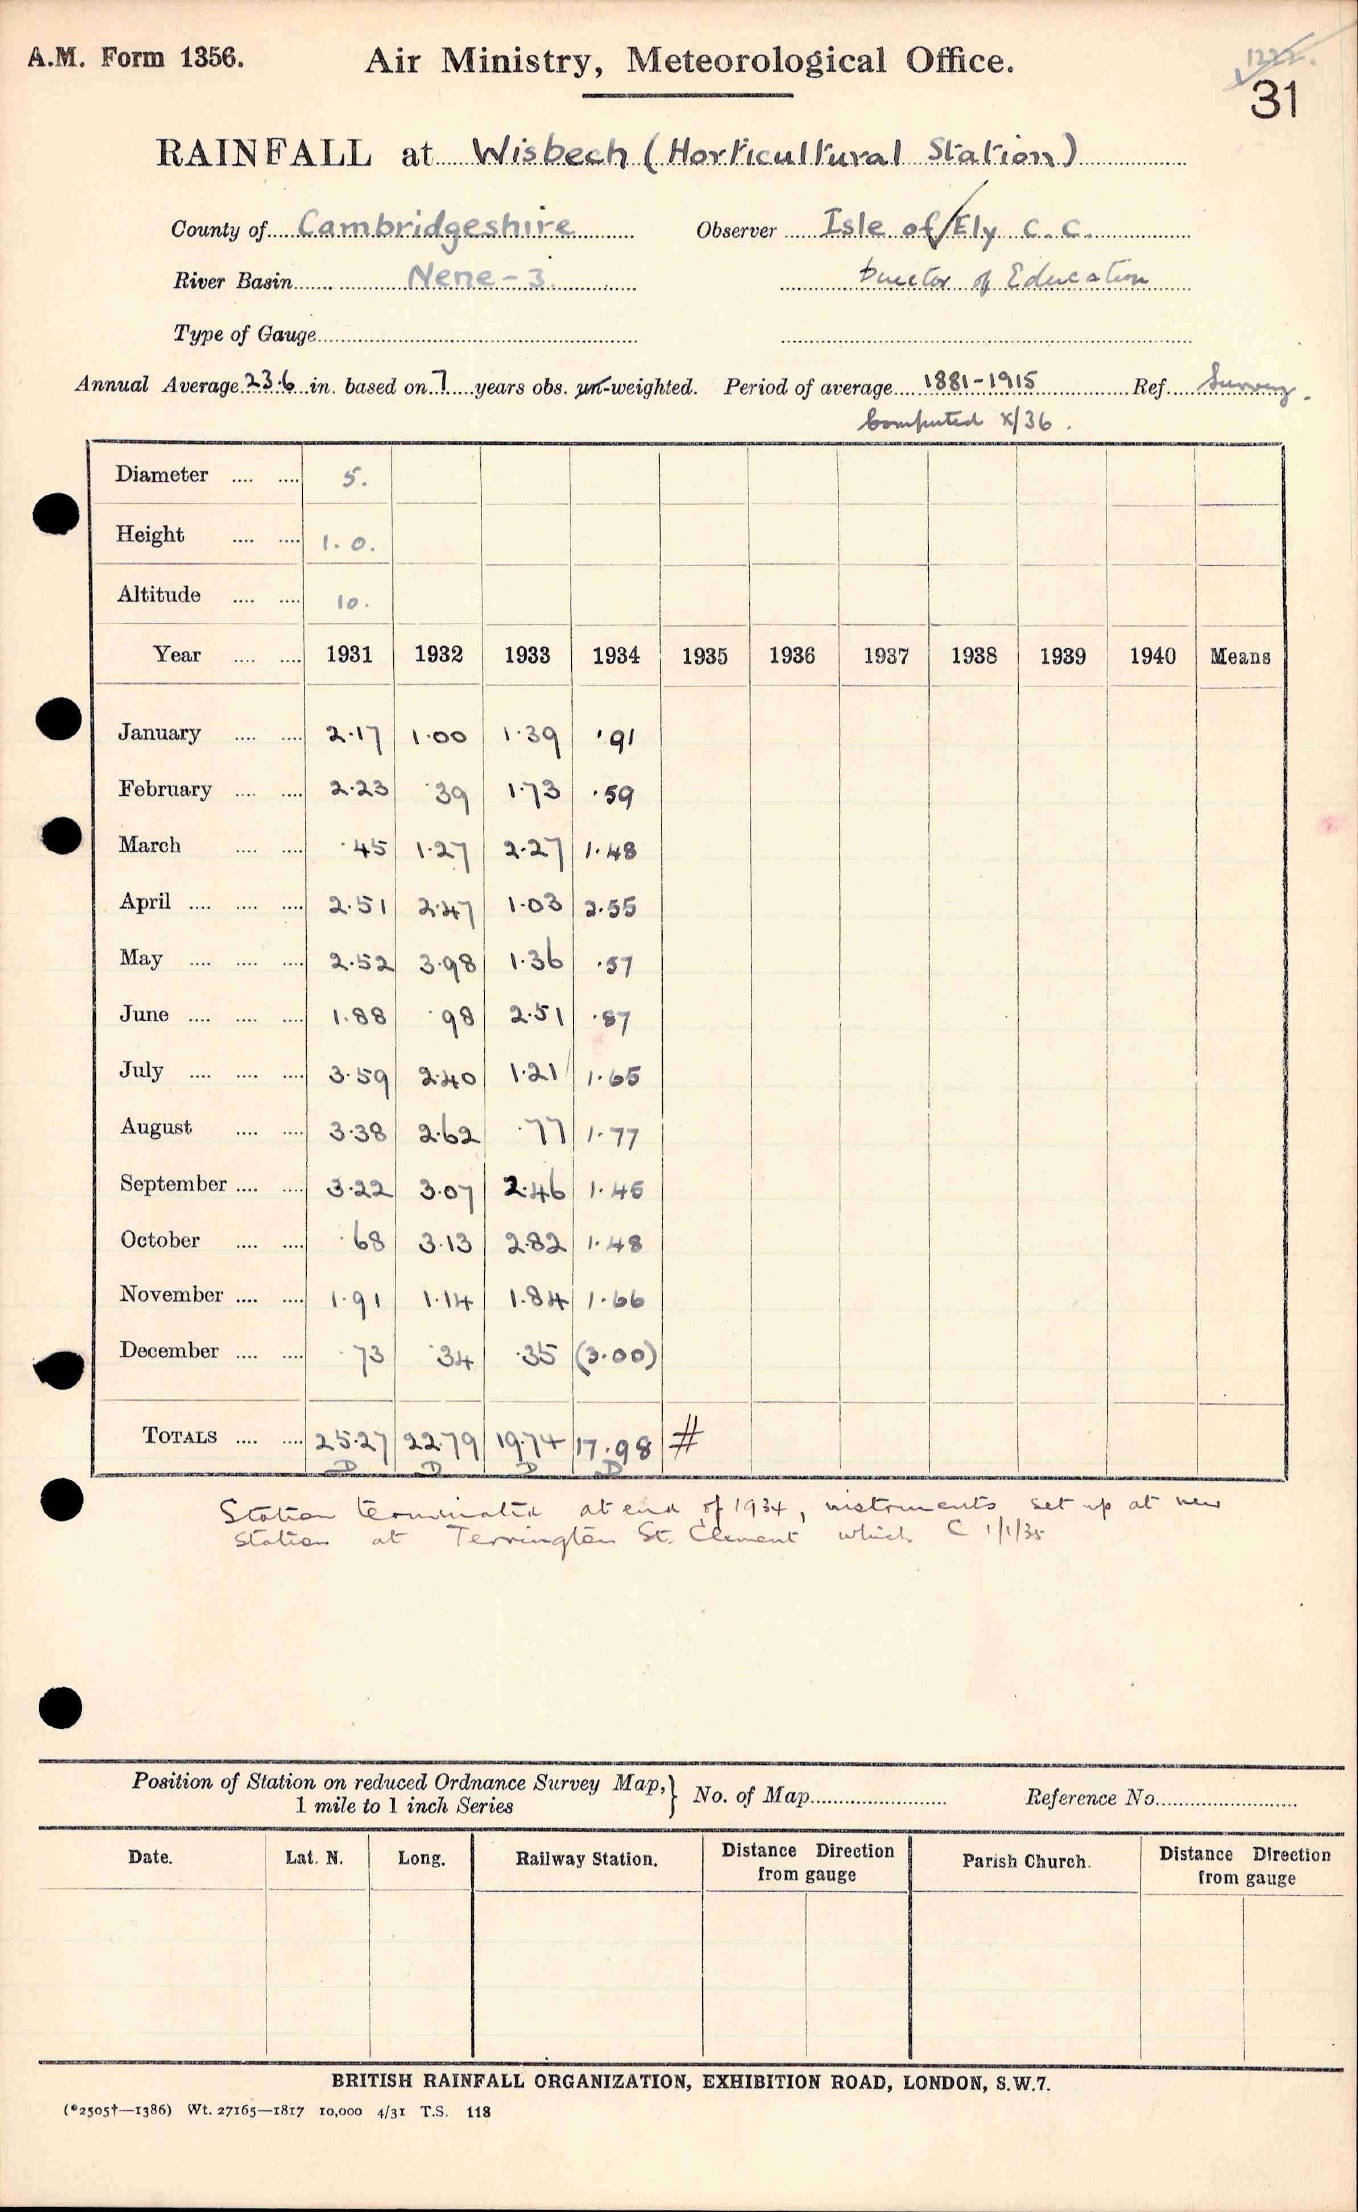 A.M. Form 1356.
Air Ministry, Meteorological Office.
1222.
31
RAINFALL at Wisbech (Horticultural Station)
County of Cambridgeshire Observer Isle of Ely C.C.
River Basin Nene-3. Director of Education
Type of Gauge
Annual Average 23.6 in. based on 7 years obs. un-weighted. Period of average 1881-1915 Ref. Survey.
Computed X/36.
Diameter .... .... 5.
Height .... .... 1.0.
Altitude .... .... 10.
Year .... .... 1931 1932 1933 1934 1935 1936 1937 1938 1939 1940 Means
January .... .... 2.17 1.00 1.39 .91
February .... .... 2.23 .39 1.73 .59
March .... .... .45 1.27 2.27 1.48
April .... .... .... 2.51 2.47 1.03 2.55
May .... .... .... 2.52 3.98 1.36 .57
June .... .... .... 1.88 .98 2.51 .87
July .... .... .... 3.59 2.40 1.21 1.65
August .... .... 3.38 2.62 .77 1.77
September .... .... 3.22 3.07 2.46 1.45
October .... .... .68 3.13 2.82 1.48
November .... .... 1.91 1.14 1.84 1.66
December .... .... .73 .34 .35 (3.00)
TOTALS .... .... 25.27 22.79 19.74 17.98 #
D D D D
Station terminated at end of 1934, instruments set up at new
station at Terrington St. Clement which C 1/1/35
Position of Station on reduced Ordnance Survey Map,} No. of Map Reference No.
1 mile to 1 inch Series
Date. Lat. N. Long. Railway Station. Distance Direction from gauge Parish Church. Distance Direction from gauge
BRITISH RAINFALL ORGANIZATION, EXHIBITION ROAD, LONDON, S.W.7.
(*2505†—1386) Wt. 27165—1817 10,000 4/31 T.S. 118